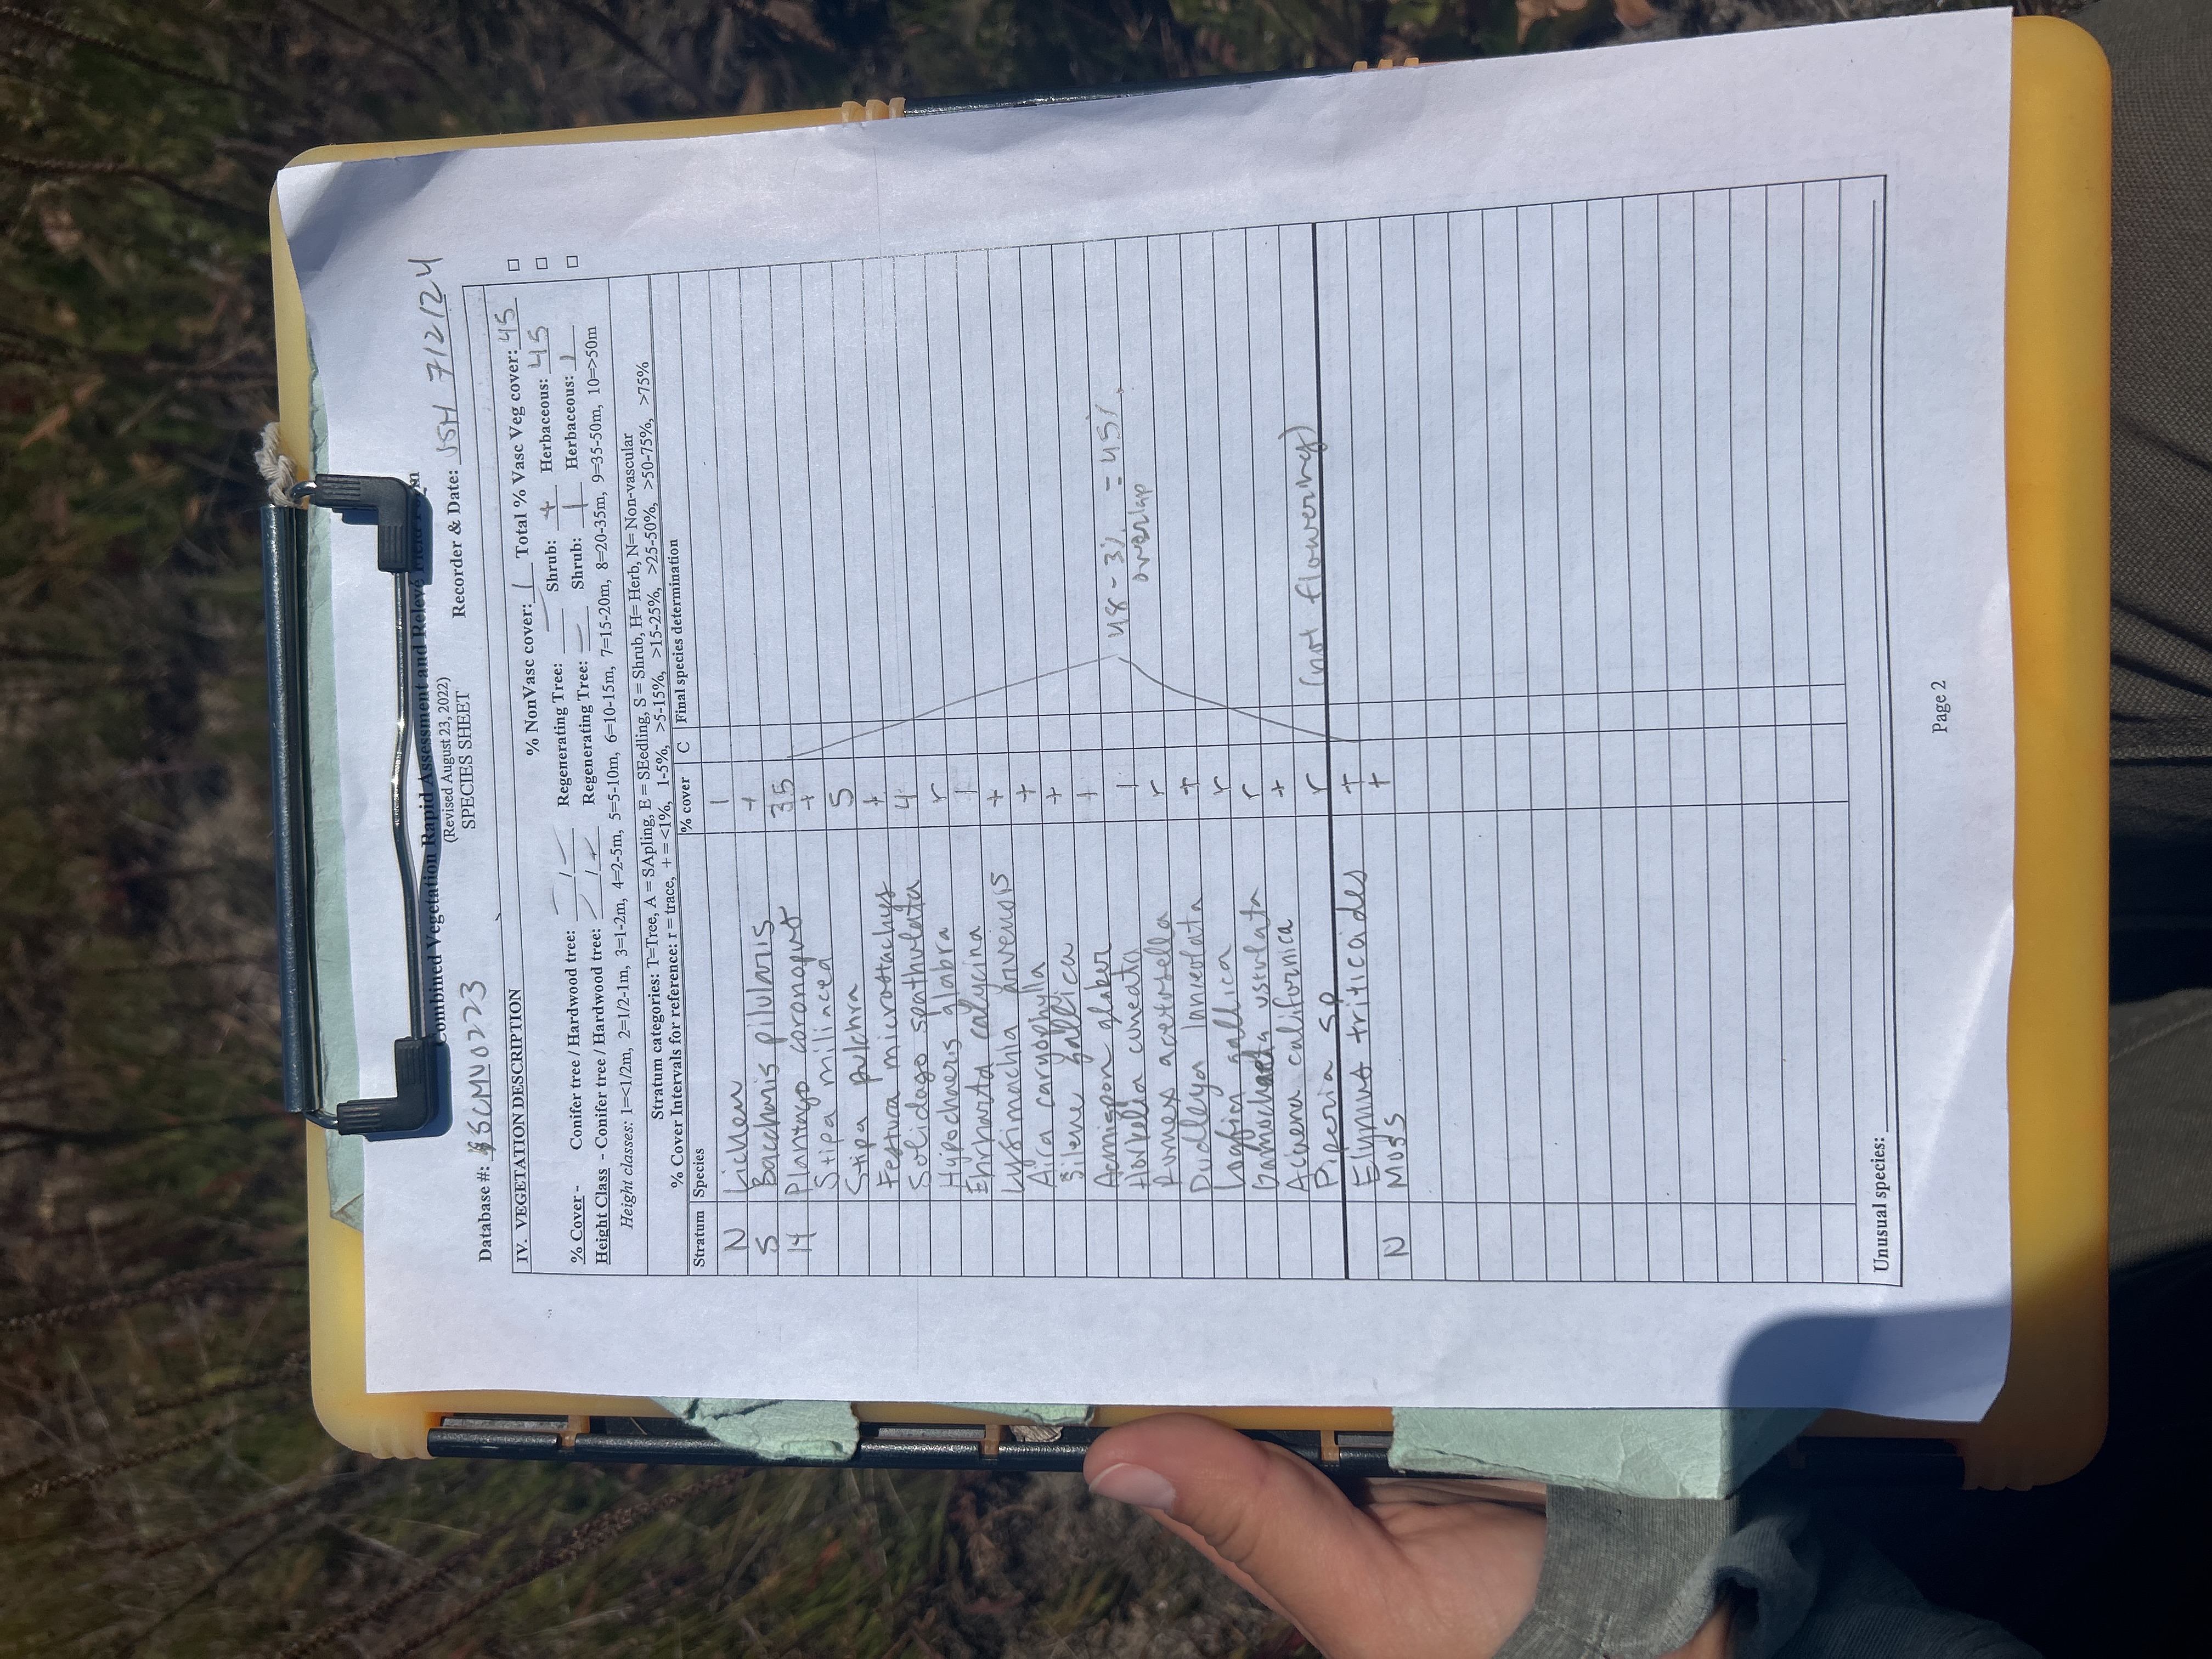 Combined Vegetation Rapid Assessment and Relevé Field Form
(Revised August 23, 2022)
SPECIES SHEET
Database #: SCMV0223 Recorder & Date: JSH 7/2/24
IV. VEGETATION DESCRIPTION
% NonVasc cover: 1 Total % Vasc Veg cover: 45
% Cover - Conifer tree / Hardwood tree: - / - Regenerating Tree: - Shrub: + Herbaceous: 45
Height Class - Conifer tree / Hardwood tree: - / - Regenerating Tree: - Shrub: 1 Herbaceous: 1
Height classes: 1=<1/2m, 2=1/2-1m, 3=1-2m, 4=2-5m, 5=5-10m, 6=10-15m, 7=15-20m, 8=20-35m, 9=35-50m, 10=>50m
Stratum categories: T=Tree, A = SApling, E = SEedling, S = Shrub, H= Herb, N= Non-vascular
% Cover Intervals for reference: r = trace, + = <1%, 1-5%, >5-15%, >15-25%, >25-50%, >50-75%, >75%
Stratum Species % cover C Final species determination
N Lichen 1
S Baccharis pilularis +
H Plantago coronopus 35
Stipa miliacea +
Stipa pulchra 5
Festuca microstachys +
Solidago spathulata 4
Hypochaeris glabra r
Ehrharta calycina 1
Lysimachia arvensis +
Aira caryophylla +
Silene gallica +
Acmispon glaber 1
Horkelia cuneata 1
48 - 3% = 45%
overlap
Rumex acetosella r
Dudleya lanceolata +
Logfia gallica r
Gamochaeta ustulata r
Acaena californica +
Piperia sp r (not flowering)
Elymus triticoides +
N Moss +
Unusual species:
Page 2